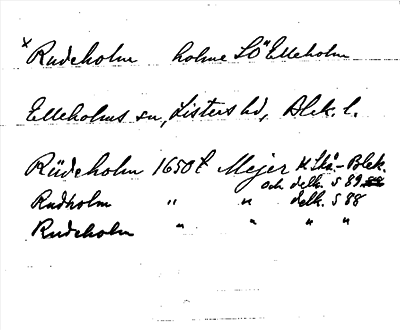 x Rudeholm holme SO Elleholm
Elleholms sn, Listers hd, Blek. l.
Rüdeholm 1650 t Mejer K Skå.-Blek.
och delk. S 89
Rudholm " " delk. S 88
Rudeholm " " " "